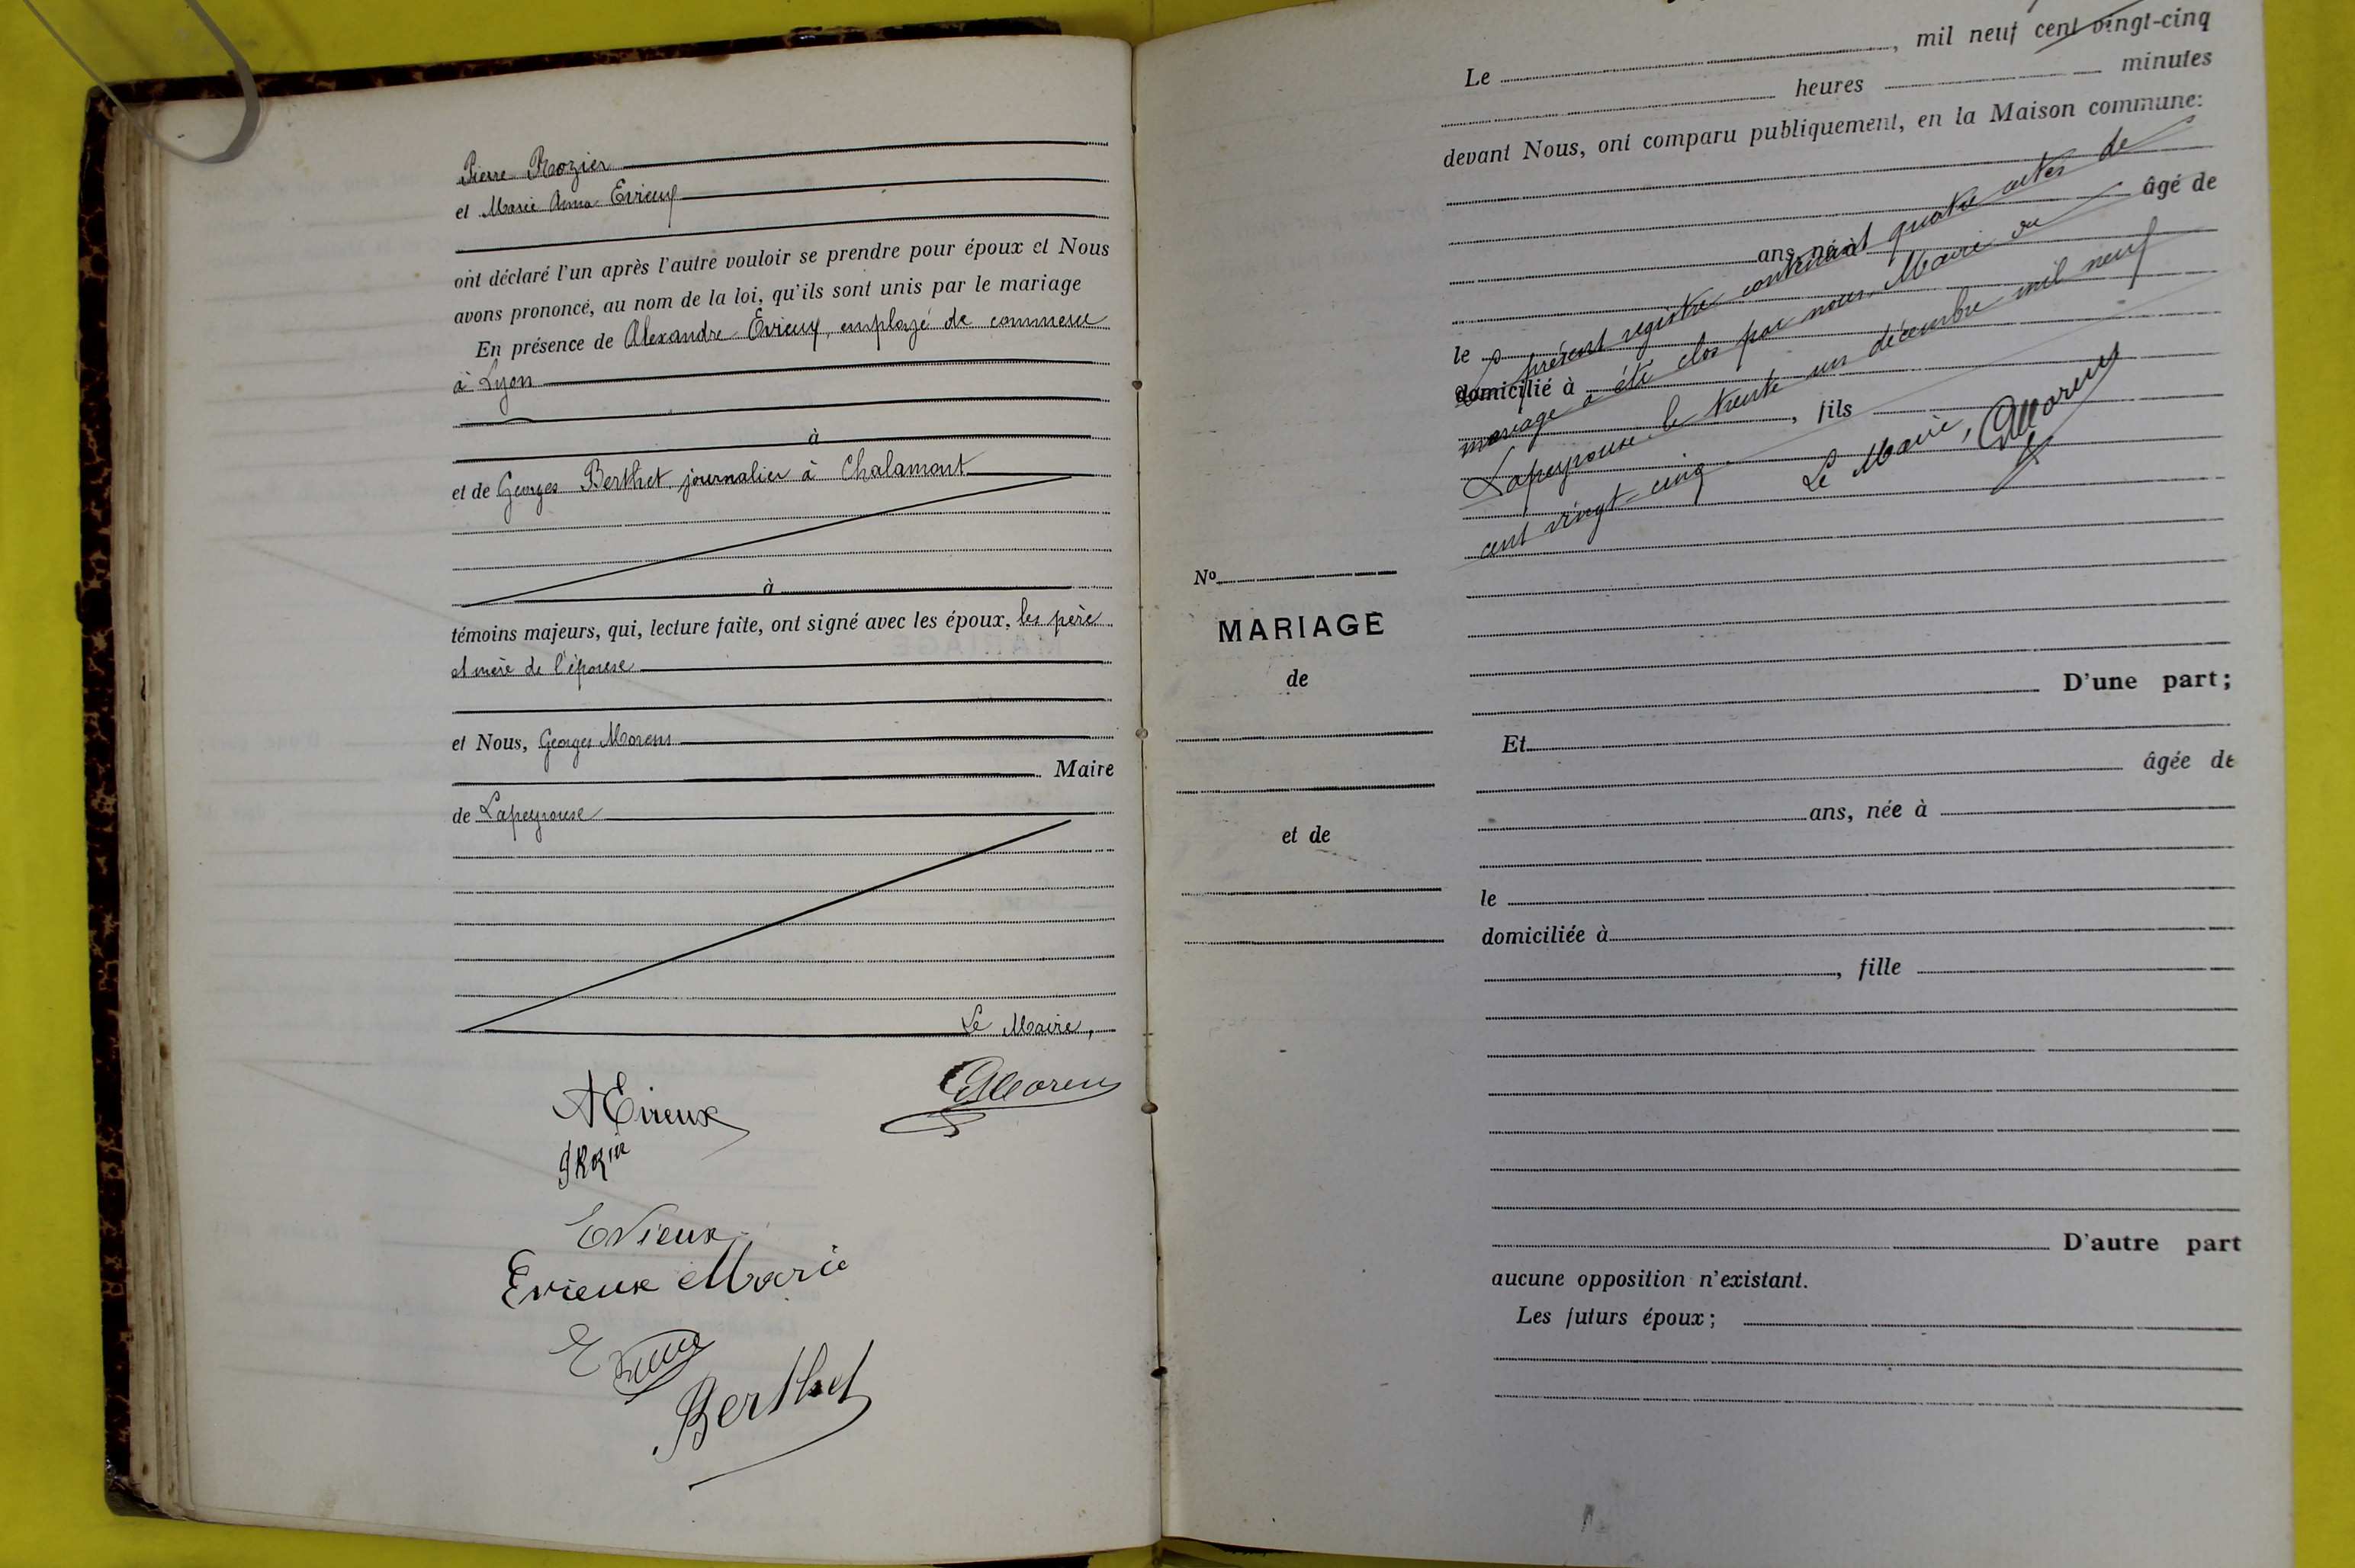 Pierre Rozier
et Marie Anna Evieux
ont déclaré l'un après l'autre vouloir se prendre pour époux et Nous
avons prononcé, au nom de la loi, qu'ils sont unis par le mariage
En présence de Alexandre Evieux, employé de commerce
à Lyon
à
et de Georges Berthet journalier à Chalamont
à
témoins majeurs, qui, lecture faite, ont signé avec les époux, les père
et mère de l'épouse
et Nous, Georges Morens
Maire
de Lapeyrouse
Le Maire,
GMorens
A Evieux
Evieux
Evieux Marie
Berthet
Le , mil neuf cent vingt-cinq
heures minutes
devant Nous, ont comparu publiquement, en la Maison commune:
âgé de
ans, né à
le
domicilié à
, fils
Le présent registre contenant quatre actes de
mariage a été clos par nous Maire de
Lapeyrouse le trente un décembre mil neuf
cent vingt-cinq
Le Maire, GMorens
No
MARIAGE
de
et de
D'une part;
Et
âgée de
ans, née à
le
domiciliée à
, fille
D'autre part
aucune opposition n'existant.
Les futurs époux;